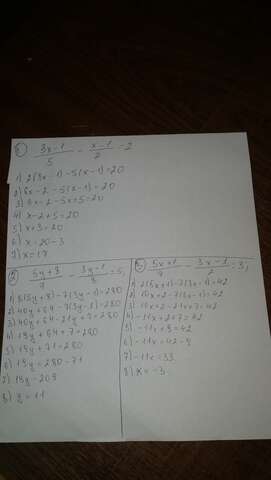 3x-1 / 5 - x-1 / 2 = 2
1) 2(3x-1)-5(x-1)=20
2) 6x-2-5(x-1)=20
3) 6x-2-5x+5=20
4) x-2+5=20
5) x+3=20
6) x=20-3
7) x=17
5y+8 / 7 - 3y-1 / 8 = 5,
1) 8(5y+8)-7(3y-1)=280
2) 40y+64-7(3y-1)=280
3) 40y+64-21y+7=280
4) 19y+64+7=280
5) 19y+71=280
6) 19y=280-71
7) 19y=209
8) y=11
5x+1 / - 3x-1 / 2 = 3,
1) 2(5x+1)-7(3x-1)=42
2) 10x+2-7(3x-1)=42
3) 10x+2-21x+7=42
4) -11x+2+7=42
5) -11x+9=42
6) -11x=42-9
7) -11x=33
8) x=-3